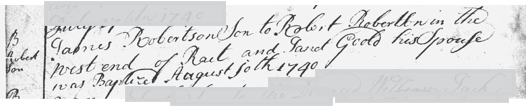 B
James Robertson Son to Robert Robertson in the
west end of Rait and Janet Goold his Spouse
was Baptized August 10th 1740